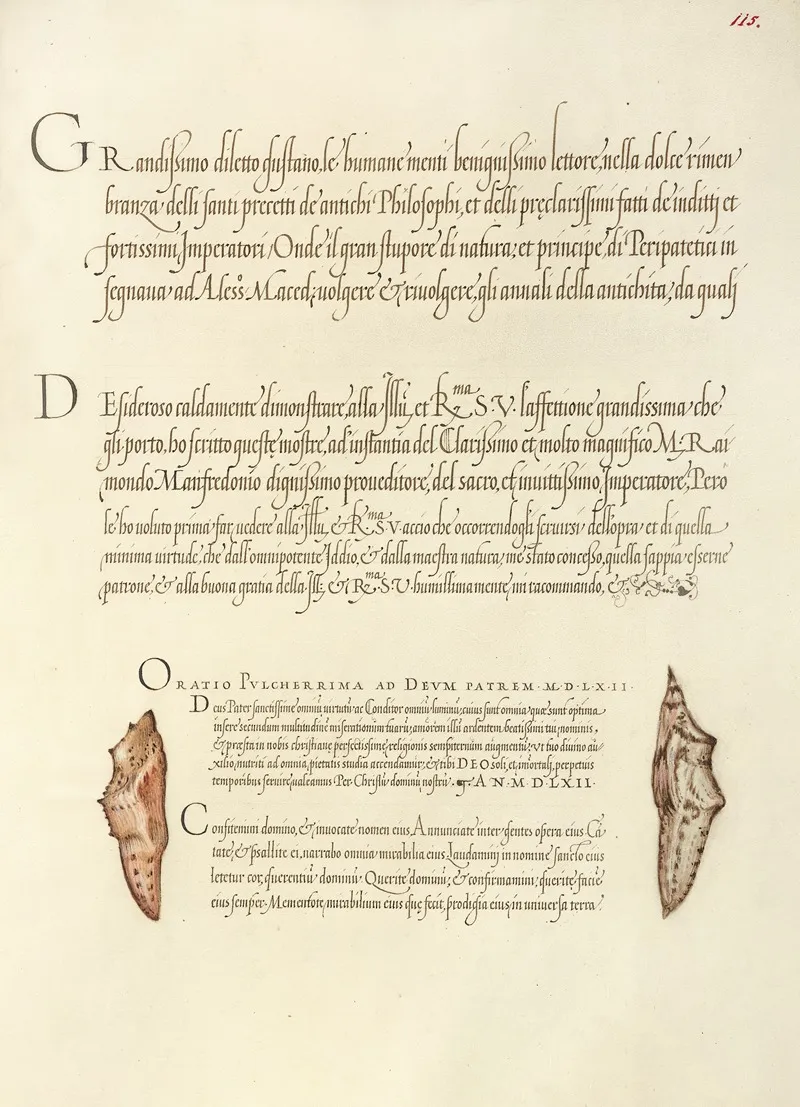 115.
GRandissimo diletto gustano, le humane menti benignissimo lettore, nella dolce rimen
branza delli santi precetti de antichi Philosophi, et delli pręclarissimi fatti de inditti et
fortissimi Imperatori, Onde il gran stupore di natura, et principe, di Peripatetici in
segnaua ad Aless. Maced; uolgere & riuolgere, gli annali della antichita, da quali
DEsideroso caldamente dimonstrare, alla Illu, et Rma S. V. l'affettione grandissima che
gli porto, ho scritto queste mostre, ad instantia del Clarissimo et molto magnifico M. Rai
mondo Manfredonio dignissimo proueditore, del sacro, et inuittissimo, Imperatore, Pero
le ho uoluto prima far, uedere alla Illu, & Rma S. V. accio che occorrendogli seruirsi dell'opra, et di quella
minima uirtude, che dall'omnipotente Iddio, & dalla maestra natura, me stato concesso, quella sappia esserne
patrone, & alla buona gratia della Ill, & Rma S. V. humillimamente, mi raccomando, &
ORATIO PVLCHERRIMA AD DEVM PATREM. M.D.LX.II.
Deus Pater sanctissime omniū uirtutū ac Conditor omniū luminū, cuius sunt omnia, quæ sunt optima,
insere secundum multitudinē miserationum tuarū, amorem illū ardentem beatissimi tui nominis,
& præsta in nobis christianę perfectissimę religionis sempiternum augmentū, vt tuo diuino au-
xilio, nutriri ad omnia, pietatis studia accendamur, & tibi DEO soli, et, imortali, perpetuis
temporibus seruire ualeamus. Per Christū dominū nostrū. AN. M.D.LXII.
Confitemini domino, & inuocate nomen eius Annunciate inter gentes opera eius. Cā
tate, & psallite ei, narrabo omnia mirabilia eius Laudamini in nomine sancto eius
letetur cor, querentiū dominū. Querite dominū, & confirmamini, querite facię
eius semper. Mementote, mirabilium eius quę fecit, prodigia eius, in uniuersa terra.